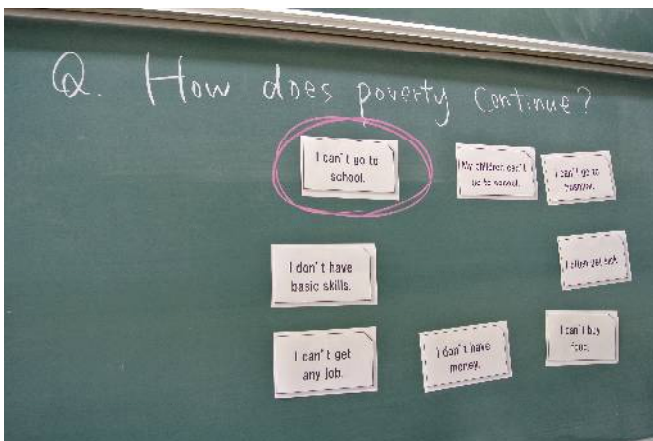 Q. How does poverty continue?
I can't go to
school.
My children can't
go to school.
I can't go to
I don't have
basic skills.
I often get sick.
I can't get
any job.
I don't have
money.
I can't buy
food.